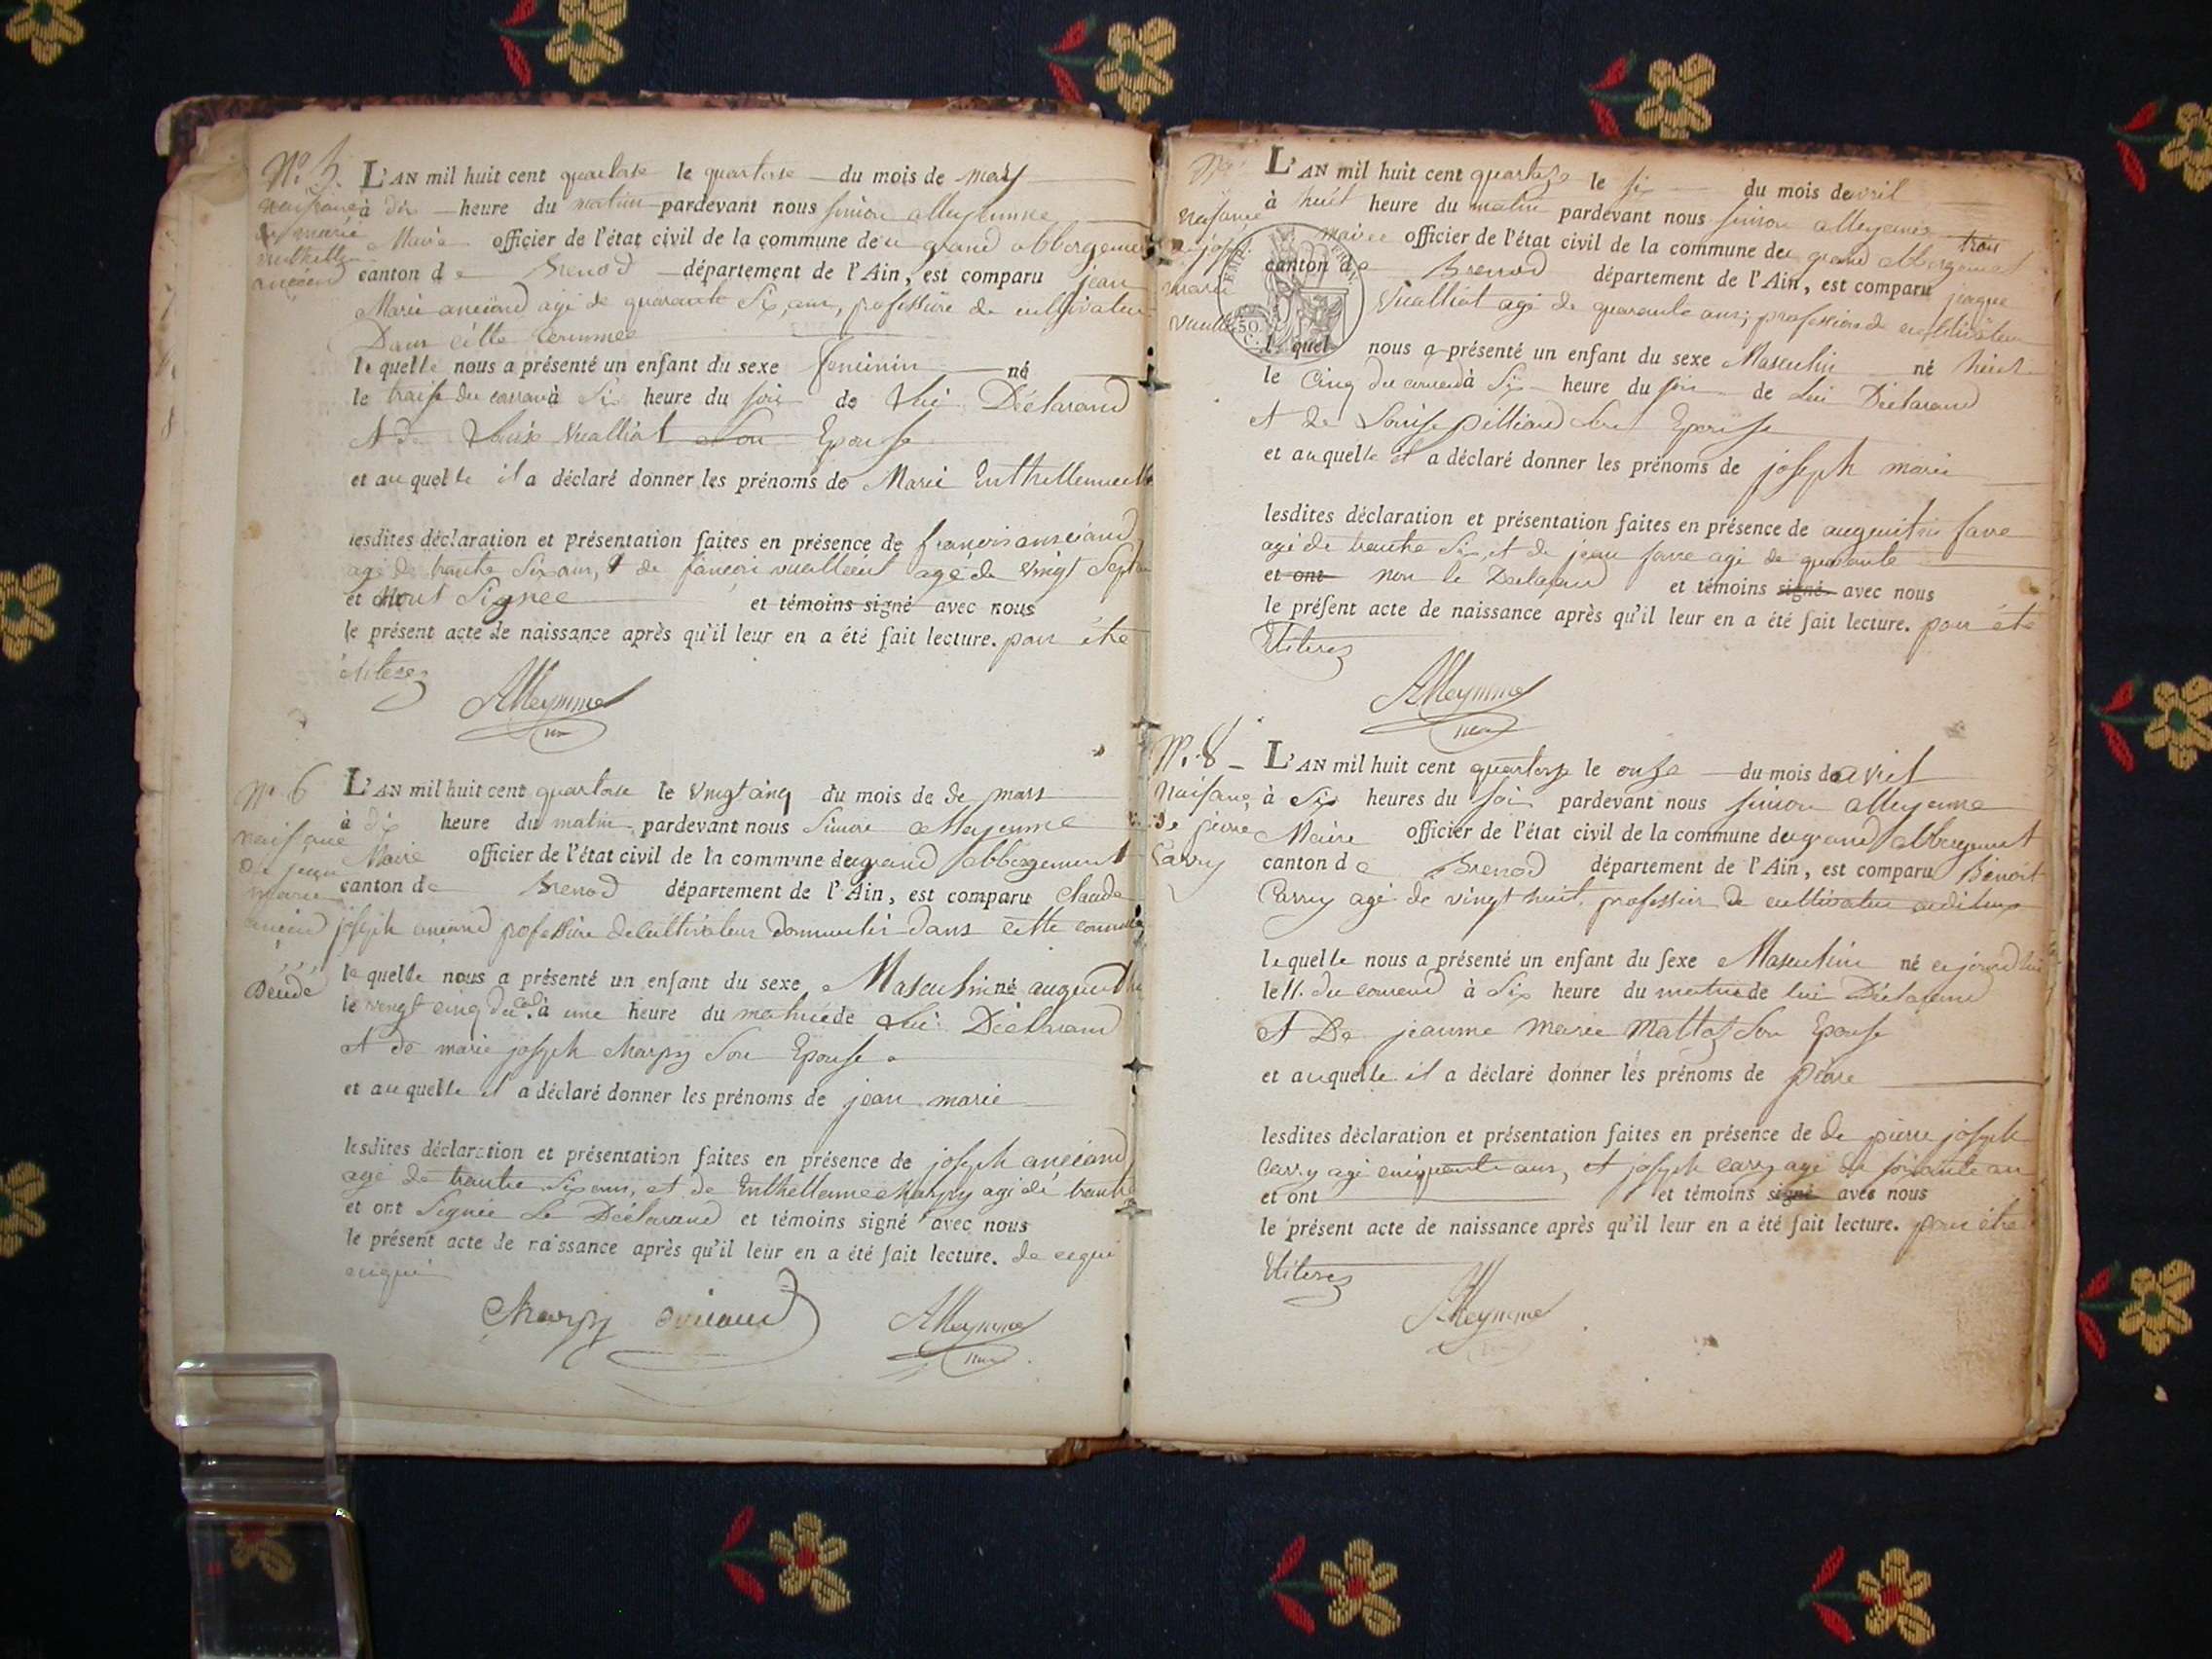 N.º 5.
naissance
de marie
enthellme
anciand
L'AN mil huit cent quartorse le quartorse du mois de mars
à dix heure du matin pardevant nous simon alleyemme
Maire officier de l'état civil de la commune de u grand abbergement
canton de Brenod département de l'Ain, est comparu jean
Marie anciand agé de quarante Six ans, professure de cultivateur
Dans cette
le quelle nous a présenté un enfant du sexe feminin né
le traise du courant à Six heure du soir de Lui Déclarand
et de Vualliat Son Epouse
et au quelle il a déclaré donner les prénoms de Marie
lesdites déclaration et présentation faites en présence de francois anciand
agé de trante Six ans, et de vualliat agé de vingt Sept
et ont Signee et témoins signé avec nous
le présent acte de naissance après qu'il leur en a été fait lecture. pour être
Alleymme
N.º 6
naissance
de jean
marie
anciand
L'AN mil huit cent quartorse le vingt cinq du mois de de mars
à dix heure du matin pardevant nous Simon Alleyemme
Maire officier de l'état civil de la commune du grand abbergement
canton de Brenod département de l'Ain, est comparu Claude
joseph anciand professure de cultivateur Dans cette
le quelle nous a présenté un enfant du sexe Masculin né
le vingt cinq du à une heure du matin de Lui Déclarand
et de marie joseph charpy Son Epouse
et au quelle il a déclaré donner les prénoms de jean marie
lesdites déclaration et présentation faites en présence de joseph anciand
agé de trante Six ans, et de Enthellme charpy agé de trante
et ont Signée Le Déclarand et témoins signé avec nous
le présent acte de naissance après qu'il leur en a été fait lecture. de ce
Charpy anciand Alleymme
naisance
joseph
marie
L'AN mil huit cent quartorze le six du mois de avril
à heuit heure du matin pardevant nous simon alleyemme
maire officier de l'état civil de la commune du grand abbergement
canton de Brenod département de l'Ain, est comparu jaque
Vualliat agé de quarante ans; professions de cultivateur
50.
C.
le quel nous a présenté un enfant du sexe Masculin né
le Cinq du courend à Six heure du soir de Lui Déclarand
et de Louise pilliand Son Epouse
et au quelle il a déclaré donner les prénoms de joseph marie
lesdites déclaration et présentation faites en présence de augustin favre
agé de trante Six, et de jean favre agé de quarante
et ont non le Déclarand et témoins signé avec nous
le présent acte de naissance après qu'il leur en a été fait lecture. pour été
Alleymme
N.º 8
Naisance
de pierre
Carry
L'AN mil huit cent quartorze le onze du mois de avril
à Six heures du soir pardevant nous simon alleyemme
Maire officier de l'état civil de la commune du grand abbergement
canton de Brenod département de l'Ain, est comparu Benoit
Carry agé de vingt huit, professions de cultivateur
le quelle nous a présenté un enfant du sexe Masculin né
le 11. du courend à Six heure du matin de lui Déclarand
et De jeanne Marie Mattos Son Epouse
et au quelle il a déclaré donner les prénoms de pierre
lesdites déclaration et présentation faites en présence de de pierre joseph
Carry agé cinquante ans, et joseph carry agé de soixante an
et ont et témoins signé avec nous
le présent acte de naissance après qu'il leur en a été fait lecture. pour être
Alleymme